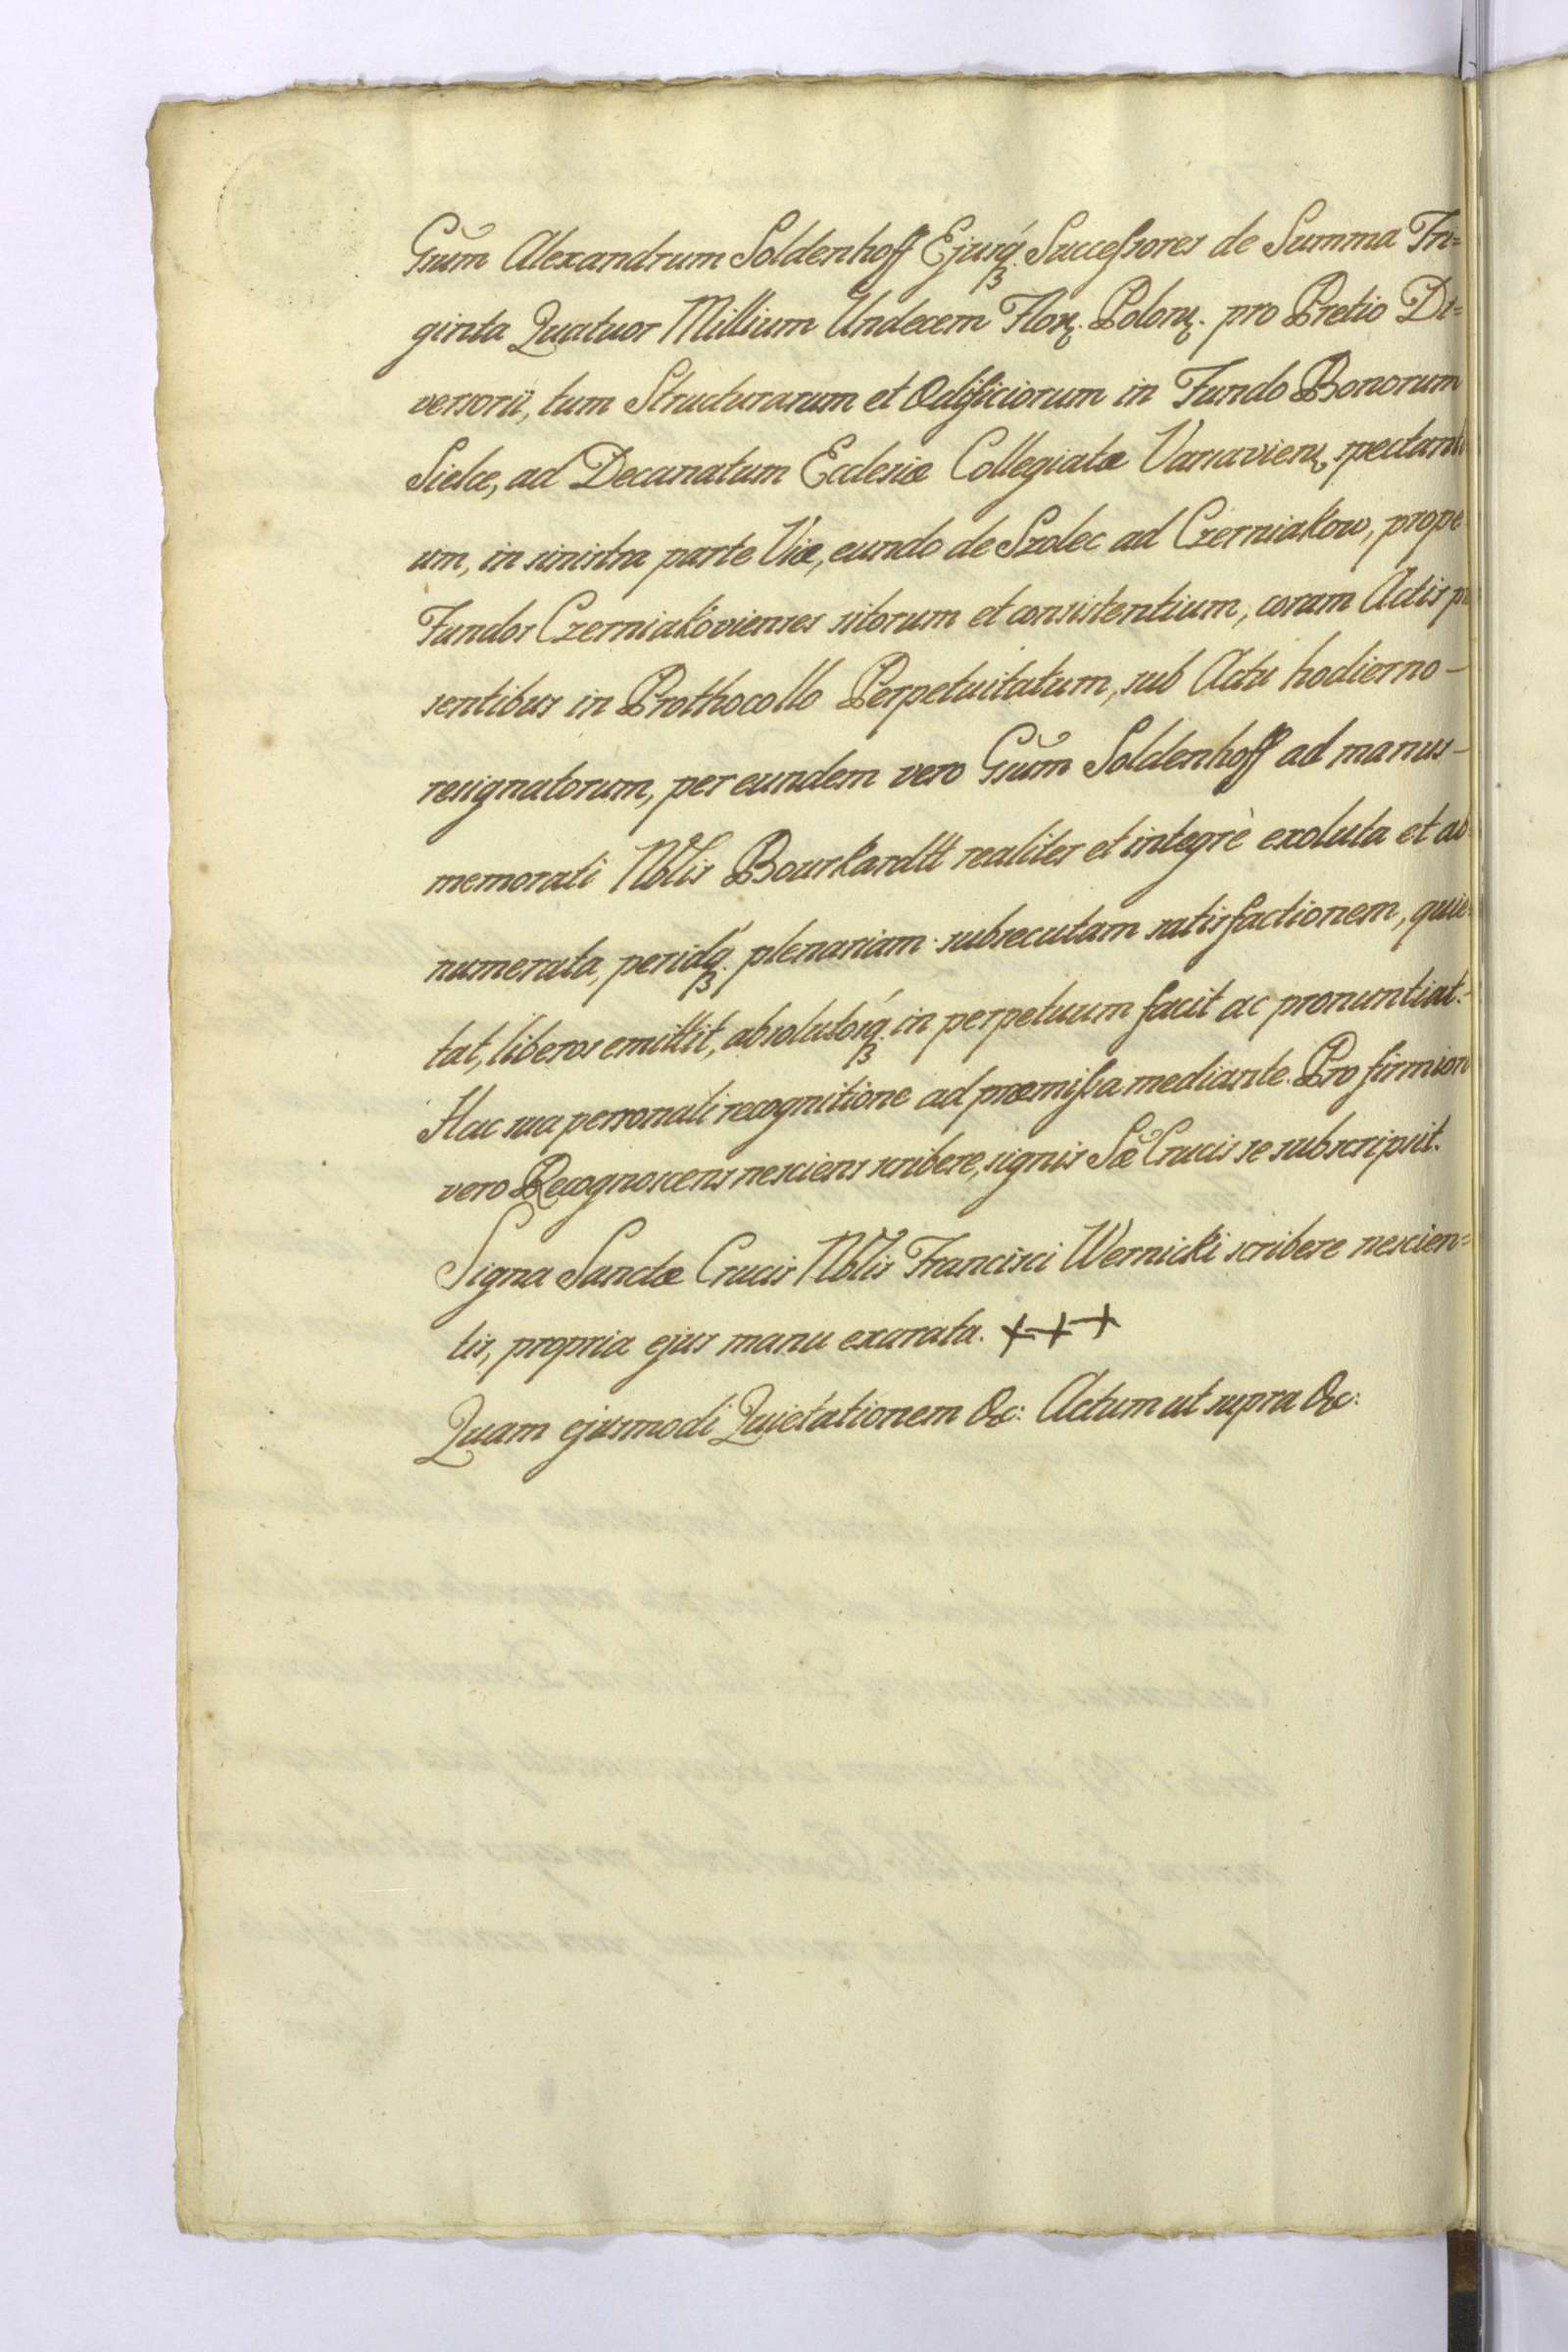 Gsum Alexandrum Soldenhoff Ejusq́ꝫ. Successores de Summa Tri=
ginta Quatuor Millium Undecem Flor. Polon. pro Pretio Di=
versorii, tum Structurarum et Ædificiorum in Fundo Bonorum
Sielce, ad Decanatum Ecclesiæ Collegiatæ Varsavien. spectanti
um, in sinistra parte Viæ, eundo de Szolec ad Czerniakow, prope
Fundos Czerniakóvienses sitorum et consistentium, coram Actis præ
sentibus in Prothocollo Perpetuitatum, sub Actu hodierno –
resignatorum, per eundem vero Gsum Soldenhoff ad manus –
memorati Nblis Bourkardtt realiter et integrè exoluta et ad
numerata, peridq́ꝫ. plenariam subsecutam satisfactionem, quie=
tat, liberos emittit, absolutosq́ꝫ. in perpetuum facit ac pronuntiat. –
Hac sua personali recognitione ad præmissa mediante. Pro firmiori
vero Recognoscens nesciens scribere, signis Sæ Crucis se subscripsit.
Signa Sanctæ Crucis Nblis Francisci Wernicki scribere nescien=
tis, propria ejus manu exarata. +++
Quam ejusmodi Quietationem &c: Actum ut supra &c: